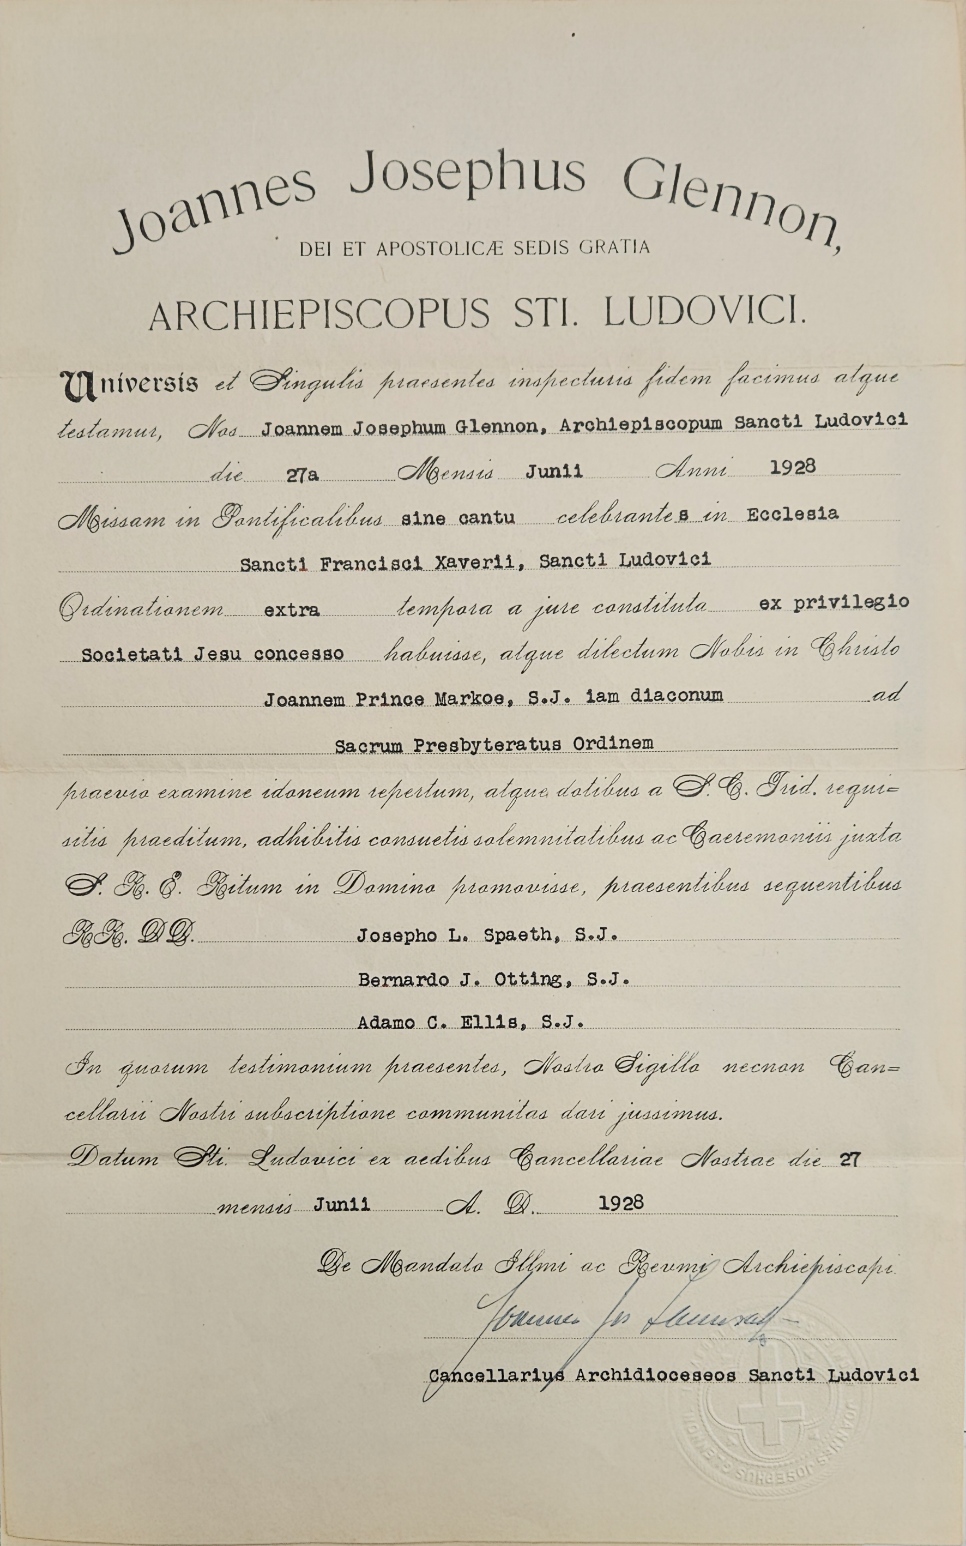 Joannes Josephus Glennon,
DEI ET APOSTOLICÆ SEDIS GRATIA
ARCHIEPISCOPUS STI. LUDOVICI.
Universis et Singulis praesentes inspecturis fidem facimus atque
testamur, Nos Joannem Josephum Glennon, Archiepiscopum Sancti Ludovici
die 27a Mensis Junii Anni 1928
Missam in Pontificalibus sine cantu celebrantes in Ecclesia
Sancti Francisci Xaverii, Sancti Ludovici
Ordinationem extra tempora a jure constituta ex privilegio
Societati Jesu concesso habuisse, atque dilectum Nobis in Christo
Joannem Prince Markoe, S.J. iam diaconum ad
Sacrum Presbyteratus Ordinem
praevio examine idoneum repertum, atque dotibus a S. C. Trid. requi=
sitis praeditum, adhibitis consuetis solemnitatibus ac Caeremoniis juxta
S. R. E. Ritum in Domino promovisse, praesentibus sequentibus
RR. DD. Josepho L. Spaeth, S.J.
Bernardo J. Otting, S.J.
Adamo C. Ellis, S.J.
In quorum testimonium praesentes, Nostro Sigillo necnon Can=
cellarii Nostri subscriptione communitas dari jussimus.
Datum Sti. Ludovici ex aedibus Cancellariae Nostrae die 27
mensis Junii A. D. 1928
De Mandato Illmi ac Revmi Archiepiscopi
Joannes Jos
Cancellarius Archidioceseos Sancti Ludovici
JOANNES JOSEPHUS GLENNON